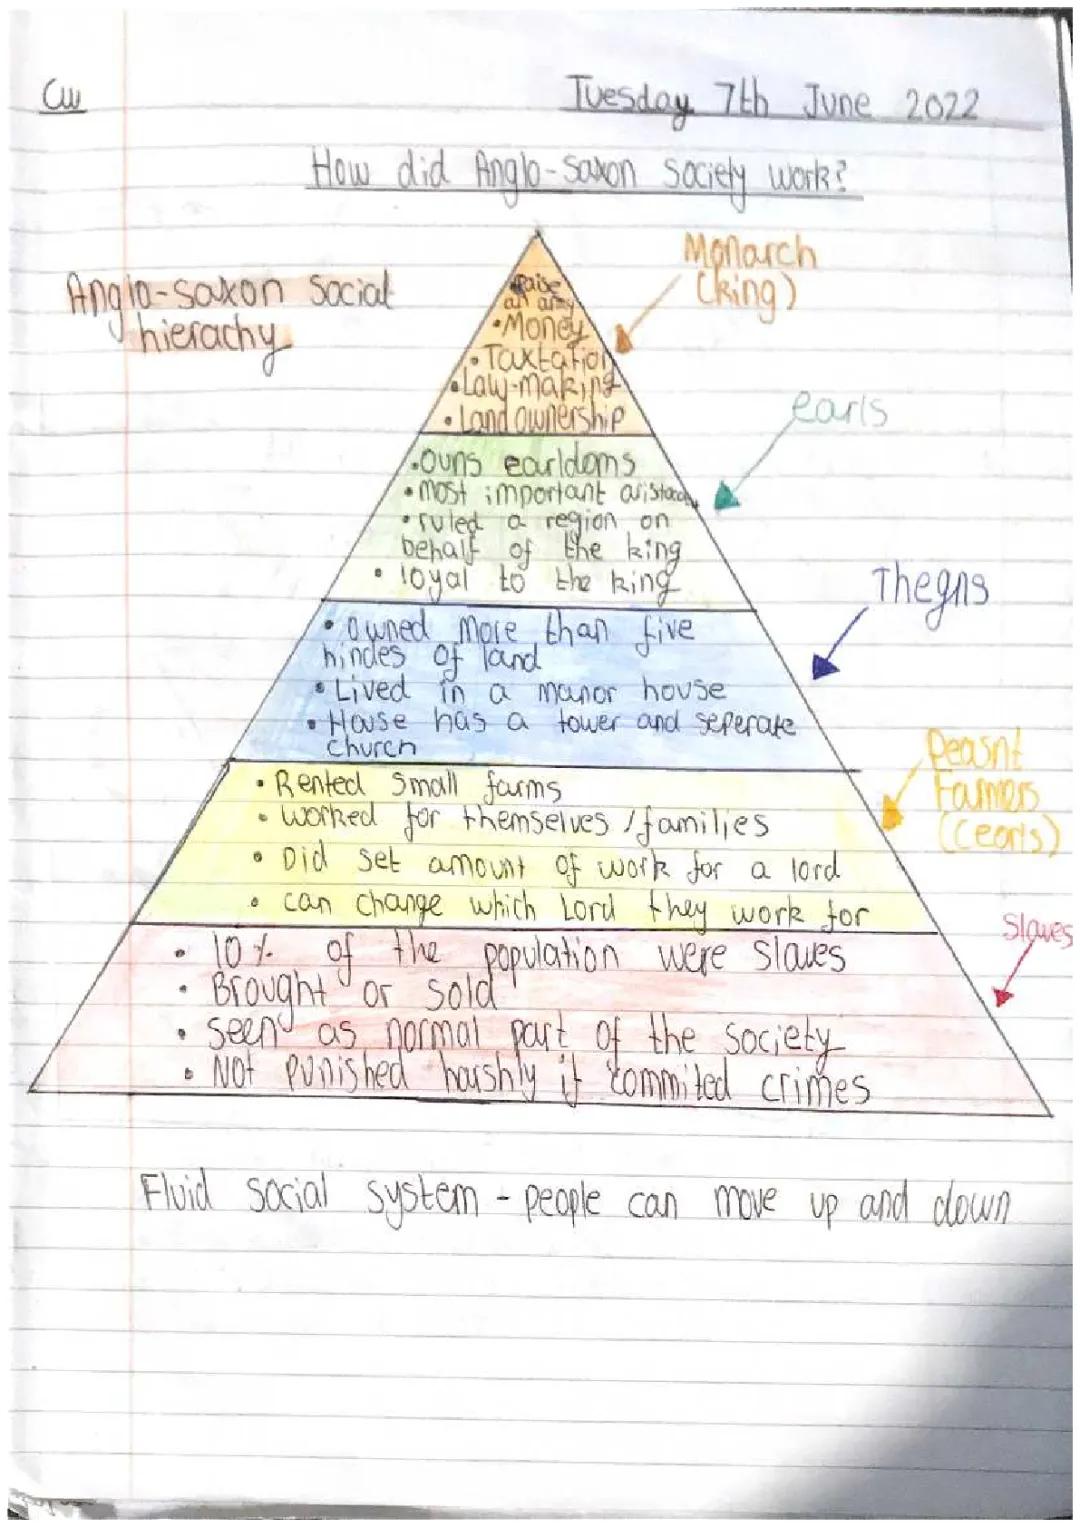 CW
Tuesday 7th June 2022
How did Anglo-Saxon Society work?
Anglo-saxon Social
hierachy
Monarch
(king)
raise
an army
• Money
• Taxtation
• Law-making
• Land ownership
earls
• Owns earldoms
• most important
• ruled a region on
behalf of the king
• loyal to the king
Thegns
• Owned more than five
hindes of land
• Lived in a manor house
• House has a tower and seperate
church
Peasnt
Farmers
(Ceorls)
• Rented small farms
• worked for themselves / families
• Did set amount of work for a lord
• can change which Lord they work for
Slaves
• 10% of the population were slaves
• Brought or sold
• seen as normal part of the society
• Not punished harshly if commited crimes
Fluid social system - people can move up and down